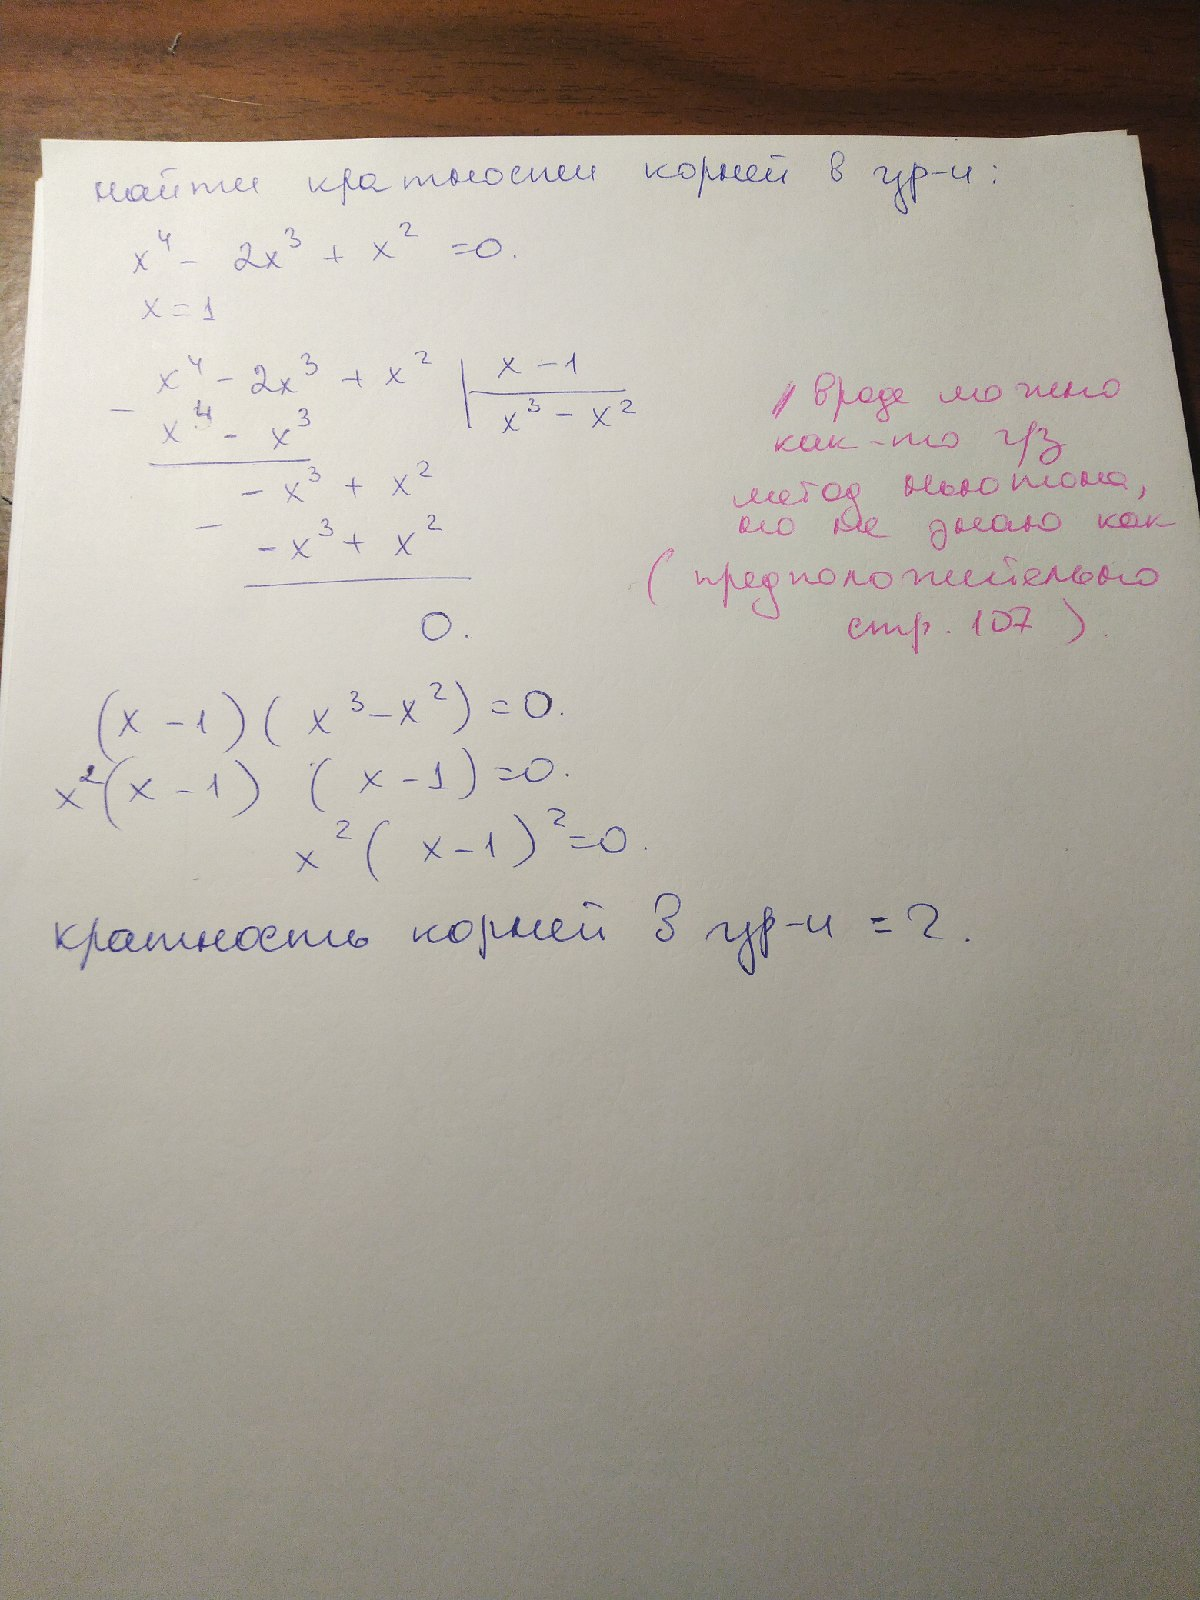 найти кратности корней в ур-и:
x⁴ - 2x³ + x² = 0.
x = 1
x⁴ - 2x³ + x² | x - 1
- x⁴ - x³ | x³ - x²
- x³ + x²
- - x³ + x²
0.
вроде можно
как-то ч/з
метод ньютона,
но не знаю как
(предположительно
стр. 107)
(x - 1)(x³ - x²) = 0.
x²(x - 1) (x - 1) = 0.
x²(x - 1)² = 0.
кратность корней в ур-и = 2.